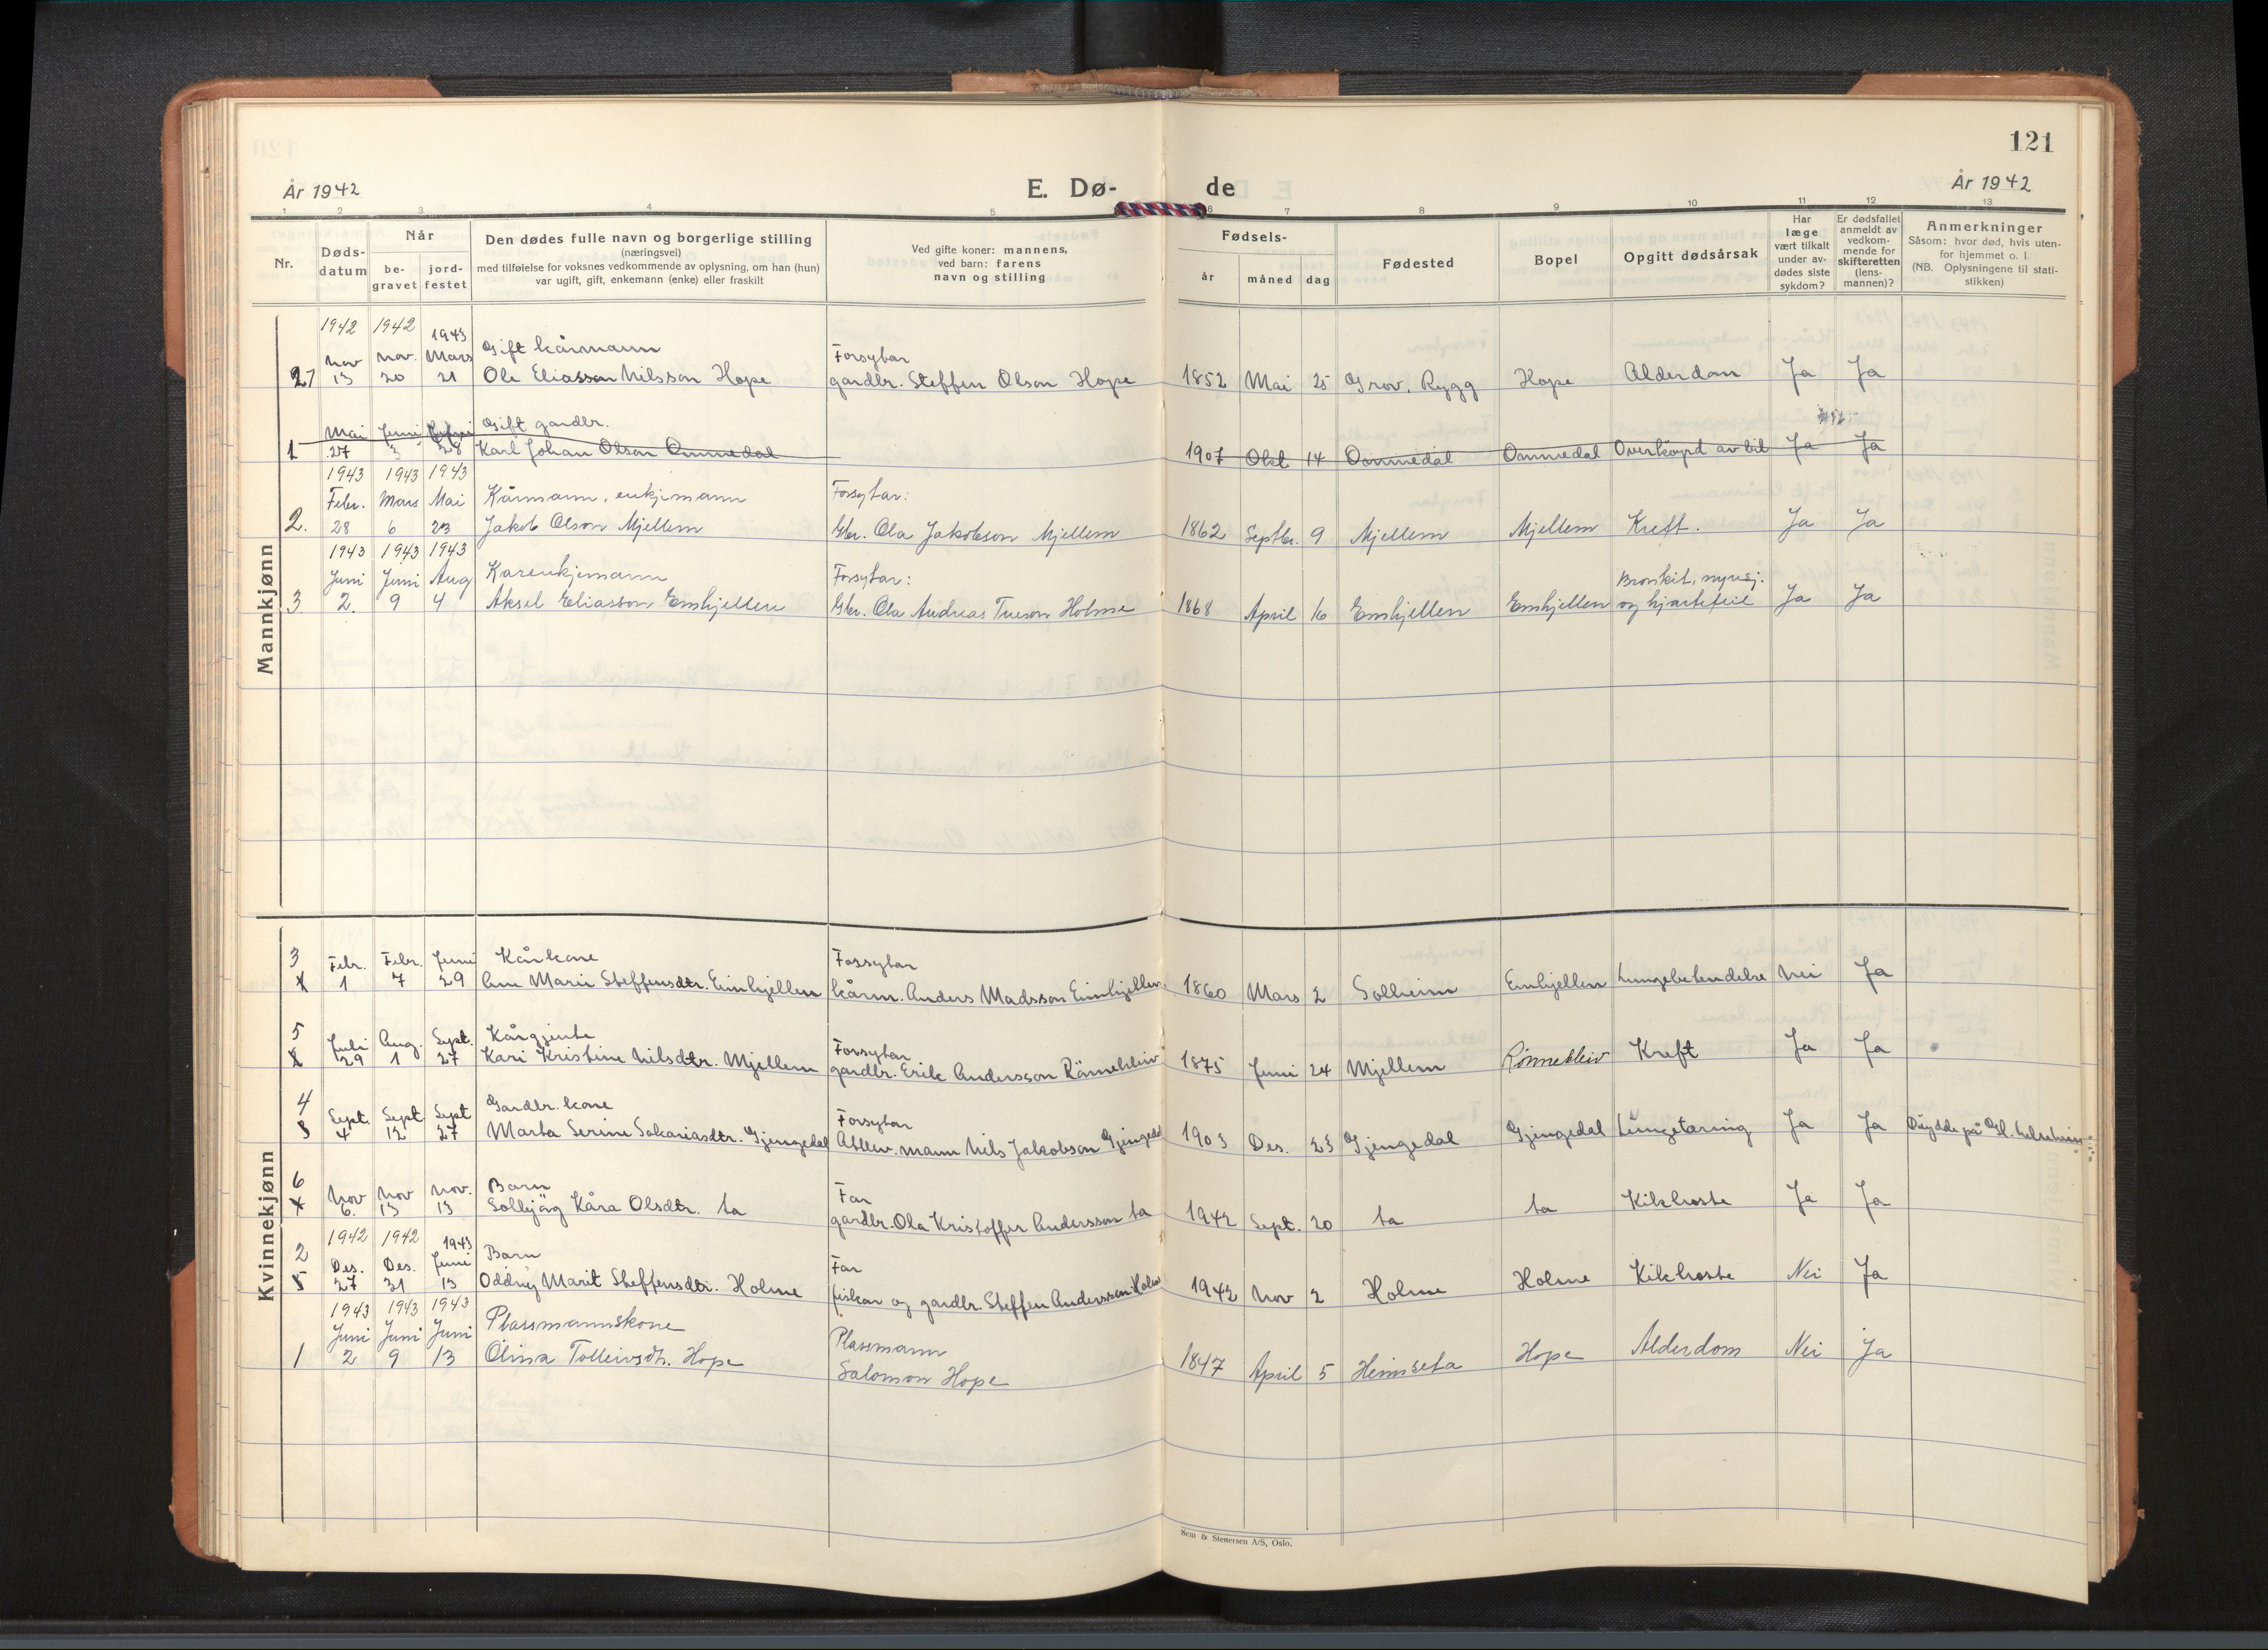 121
År 1942
E. Dø-
de
År 1942
1 2 3 4 5 6 7 8 9 10 11 12 13
Nr.
Døds-
datum
Når
be-
gravet
jord-
festet
Den dødes fulle navn og borgerlige stilling
(næringsvei)
med tilføielse for voksnes vedkommende av oplysning, om han (hun)
var ugift, gift, enkemann (enke) eller fraskilt
Ved gifte koner: mannens,
ved barn: farens
navn og stilling
Fødsels-
år
måned
dag
Fødested
Bopel
Opgitt dødsårsak
Har
læge
vært tilkalt
under av-
dødes siste
sykdom?
Er dødsfallet
anmeldt av
vedkom-
mende for
skifteretten
(lens-
mannen)?
Anmerkninger
Såsom: hvor død, hvis uten-
for hjemmet o. l.
(NB. Oplysningene til stati-
stikken)
Mannkjønn
1942 1942 1943
Nov Nov. Mars Gift kårmann Forsytar
13 20 21 Ole Eliasson Nilsson Hope gardbr. Steffen Olson Hope 1852 Mai 25 Grov. Rygg Hope Alderdom Ja Ja
Mai Juni Gift gardbr.
1 27 3 28 Karl Johan Olson Ommedal 1907 Okt 14 Ommedal Ommedal Overkøyrd av bil Ja Ja
1943 1943 1943
Febr. Mars Mai Kårmann, enkjemann Forsytar:
2. 28 6 23 Jakob Olson Mjellem Gbr. Ola Jakobson Mjellem 1862 Septbr. 9 Mjellem Mjellem Kreft. Ja Ja
1943 1943 1943
Juni Juni Aug Karenkjemann Forsytar: Bronkit, nyresj.
3 2. 9 4 Aksel Eliasson Emhjellen Gbr. Ola Andreas Tueson Holme 1868 April 16 Emhjellen Emhjellen og hjartefeil Ja Ja
Kvinnekjønn
3 Febr. Febr. Juni Kårkone Forsytar
1 7 29 Ane Marie Steffensdtr. Eimhjellen kårm. Anders Madsson Eimhjellen 1860 Mars 2 Solheim Emhjellen Lungebetendelse Nei Ja
5 Juli Aug. Sept. Kårgjente Forsytar
29 1 27 Kari Kristine Nilsdtr. Mjellem gardbr. Erik Andersson Rönnekleiv 1875 Juni 24 Mjellem Rönnekleiv Kreft Ja Ja
4 Sept. Sept Sept Gardbr. kone Forsytar
3 4 12 27 Marta Serine Sakariasdtr. Gjengedal Attlev. mann Nils Jakobson Gjengedal 1903 Des. 23 Gjengedal Gjengedal Lungetæring Ja Ja Døydde på Gl. helseheim
6 Nov Nov Nov. Barn Far
4 6. 13 13 Solbjørg Kåra Olsdtr. Ta gardbr. Ola Kristoffer Andersson Ta 1942 Sept. 20 Ta Ta Kikhoste Ja Ja
1942 1942 1943
2 Des. Des. Juni Barn Far
5 27 31 13 Oddny Marit Steffensdtr. Holme fiskar og gardbr. Steffen Andersson Holme 1942 Nov 2 Holme Holme Kikhoste Nei Ja
1943 1943 1943
Juni Juni Juni Plassmannskone Plassmann
1 2 9 13 Olina Tolleivsdtr. Hope Salomon Hope 1847 April 5 Heimseta Hope Alderdom Nei Ja
Sem & Stenersen A/S, Oslo.